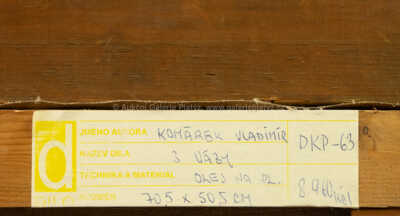 © Aukční Galerie Platýz, www.galerieplatyz.cz
d JMÉNO AUTORA KOMÁREK VLADIMÍR DKP-63
NÁZEV DÍLA 3 VÁZY
TECHNIKA A MATERIÁL OLEJ NA PL.
70,5 x 50,5 CM